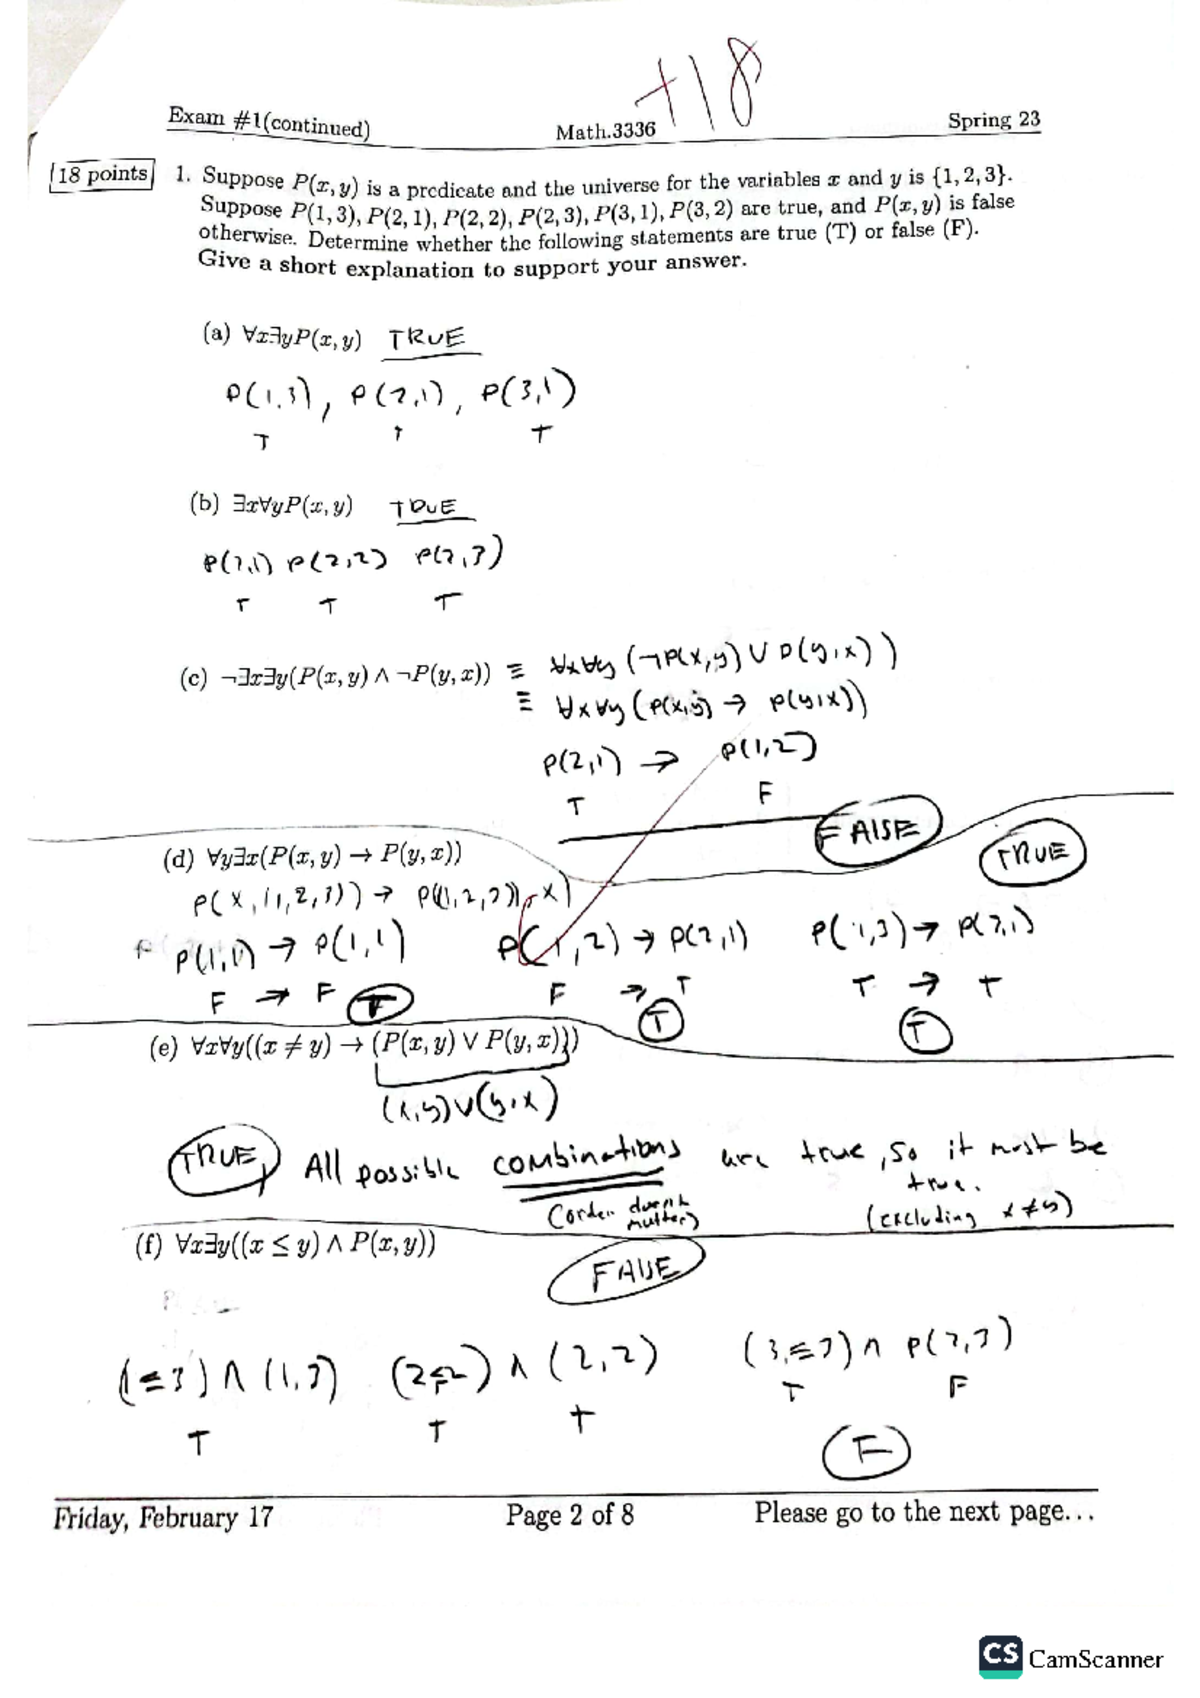 +18
Exam #1(continued) Math.3336 Spring 23
18 points 1. Suppose P(x, y) is a predicate and the universe for the variables x and y is {1, 2, 3}.
Suppose P(1, 3), P(2, 1), P(2, 2), P(2, 3), P(3, 1), P(3, 2) are true, and P(x, y) is false
otherwise. Determine whether the following statements are true (T) or false (F).
Give a short explanation to support your answer.
(a) ∀x∃yP(x, y) TRUE
P(1,3), P(2,1), P(3,1)
T T T
(b) ∃x∀yP(x, y) TRUE
P(2,1) P(2,2) P(2,3)
T T T
(c) ¬∃x∃y(P(x, y) ∧ ¬P(y, x)) ≡ ∀x∀y (¬P(x,y) ∨ P(y,x))
≡ ∀x∀y (P(x,y) → P(y,x))
P(2,1) → P(1,2)
T F
FALSE
(d) ∀y∃x(P(x, y) → P(y, x)) TRUE
P(x, (1,2,3)) → P((1,2,3), x)
P(1,1) → P(1,1) P(1,2) → P(2,1) P(1,3) → P(3,1)
F → F T F → T T → T
T T
(e) ∀x∀y((x ≠ y) → (P(x, y) ∨ P(y, x)))
(x,y)∨(y,x)
TRUE, All possible combinations are true, so it must be
true.
(order doesn't matter) (excluding x≠y)
(f) ∀x∃y((x ≤ y) ∧ P(x, y))
FALSE
(1≤3) ∧ (1,3) (2≤2) ∧ (2,2) (3≤3) ∧ P(3,3)
T T T T F
F
Friday, February 17 Page 2 of 8 Please go to the next page...
CS CamScanner